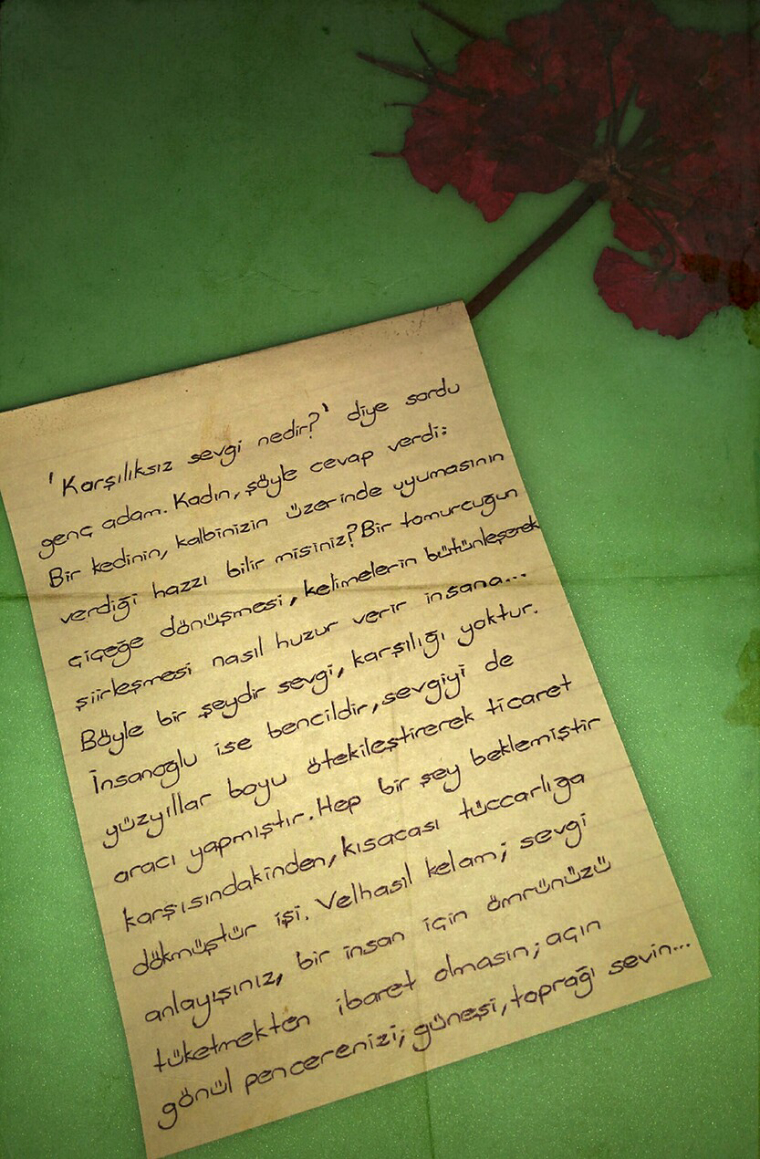 'Karşılıksız sevgi nedir?' diye sordu
genç adam. Kadın, şöyle cevap verdi:
Bir kedinin, kalbinizin üzerinde uyumasının
verdiği hazzı bilir misiniz? Bir tomurcuğun
çiçeğe dönüşmesi, kelimelerin bütünleşerek
şiirleşmesi nasıl huzur verir insana...
Böyle bir şeydir sevgi, karşılığı yoktur.
İnsanoğlu ise bencildir, sevgiyi de
yüzyıllar boyu ötekileştirerek ticaret
aracı yapmıştır. Hep bir şey beklemiştir
karşısındakinden, kısacası tüccarlığa
dökmüştür işi. Velhasıl kelam; sevgi
anlayışınız, bir insan için ömrünüzü
tüketmekten ibaret olmasın; açın
gönül pencerenizi; güneşi, toprağı sevin...